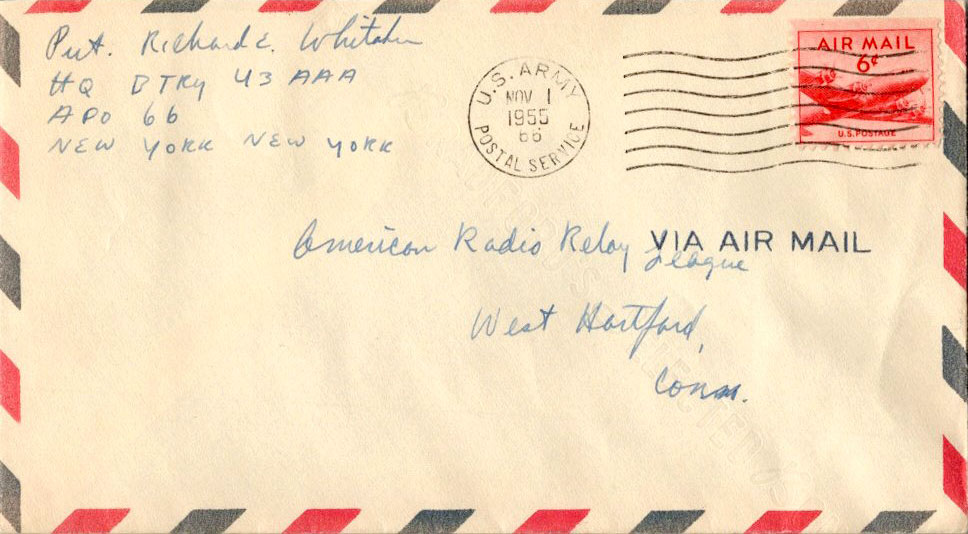 Pvt. Richard E. Whitaker
HQ BTRY 43 AAA
APO 66
NEW YORK NEW YORK
U.S. ARMY
NOV 1
1955
66
POSTAL SERVICE
AIR MAIL
6¢
U.S. POSTAGE
VIA AIR MAIL
American Radio Relay League
West Hartford,
Conn.